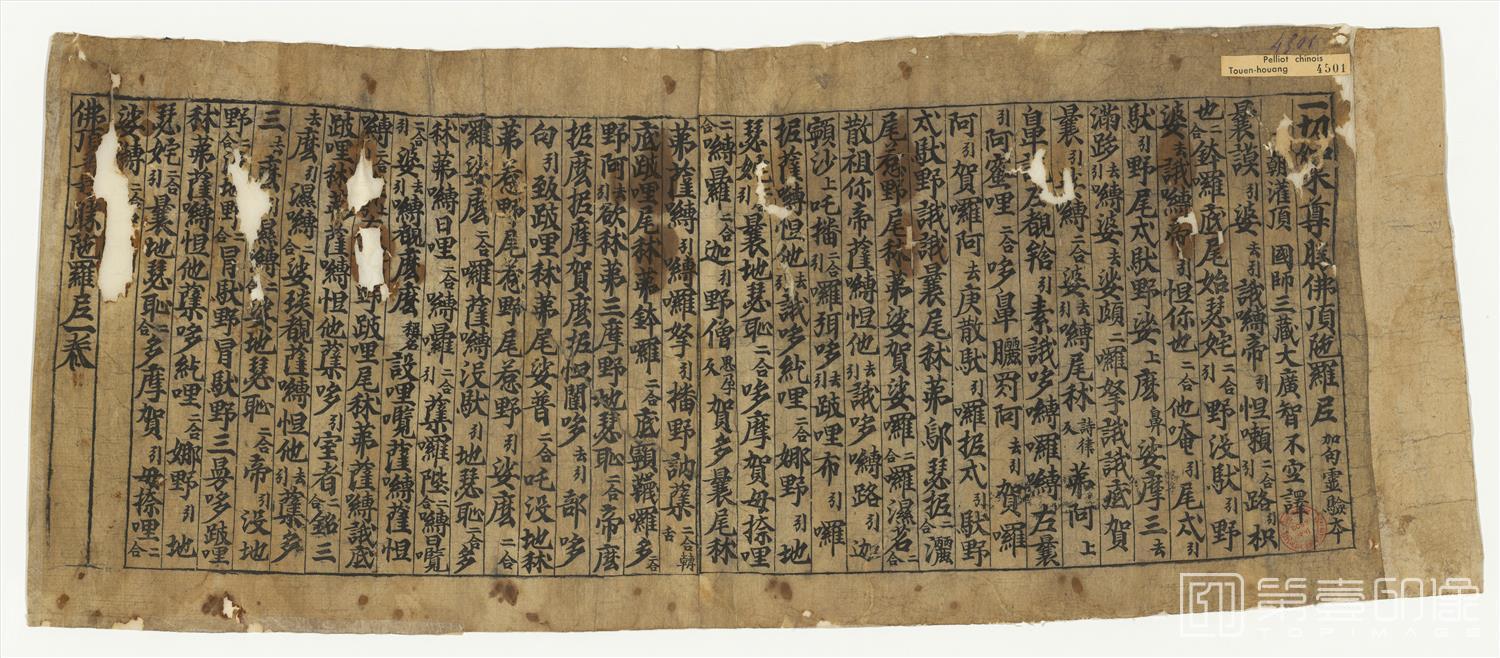 4501
Pelliot chinois
Touen-houang 4501
一切來尊勝佛頂陁羅尼 加句靈驗本
朝灌頂 國師三藏大廣智不空譯
曩謨引婆去誐嚩帝引怛嚹二合路引枳
也二合鉢囉底尾始瑟姹二合野沒馱引野
婆去誐嚩帝引怛你也二合他唵引尾戍引
馱引野尾戍馱野娑上麽鼻娑摩三去
滿跢引去嚩婆去娑頗二囉拏誐誐底賀
曩引嚩二合婆引去嚩尾秫詩律反弟阿上
鼻左覩𤚥引素誐哆嚩囉嚩左曩
引阿蜜哩二合哆鼻曬罽阿去引賀囉
阿引賀囉阿去庾散馱引囉抳戍引馱野
戍馱野誐誐曩尾秫弟鄔瑟抳二合灑
尾惹野尾秫弟娑賀娑囉二合囉濕茗二合
散祖你帝薩嚩怛他去誐哆嚩路引迦
顊沙上吒播二合引囉弭哆去引跛哩布引囉
抳薩嚩怛他去誐哆紇哩二合娜野引地
瑟姹引曩地瑟耻二合哆摩賀母捺哩
二合嚩日囉二合迦引野僧思孕反賀多曩尾秫
弟薩嚩引嚩囉拏引播野訥蘖二合轉舌
底跛哩尾秫弟鉢囉二合底顊韈囉多二合
野阿去引欲秫弟三摩野地瑟耻二合帝麽
抳麽抳摩賀麽抳怛闥哆去引部哆
句引致跛哩秫弟尾娑普二合吒沒地秫
弟惹野尾惹野尾惹野引娑麽二合
囉娑麽二合囉薩嚩沒馱引地瑟耻二合多
秫弟嚩日哩二合嚩日囉二合引蘖囉陛二合嚩日覧
二合引婆去引嚩覩麽麽稱名設哩覧薩嚩薩怛
嚩跛哩尾秫弟薩嚩誐底
跛哩秫弟薩嚩怛他蘖哆引室者二合銘三
去麽濕嚩二合娑琰覩薩嚩怛他去引蘖多
三麽濕嚩二合地瑟耻二合帝引沒地
野二合地野二合冒馱野冒馱野三曼哆跛哩
秫弟薩嚩怛他蘖哆紇哩二合娜野引地
瑟姹二合引曩地瑟耻二合多摩賀引母捺哩二合
娑嚩二合
佛頂勝陁羅尼一卷
第壹印像
TOPIMAGE